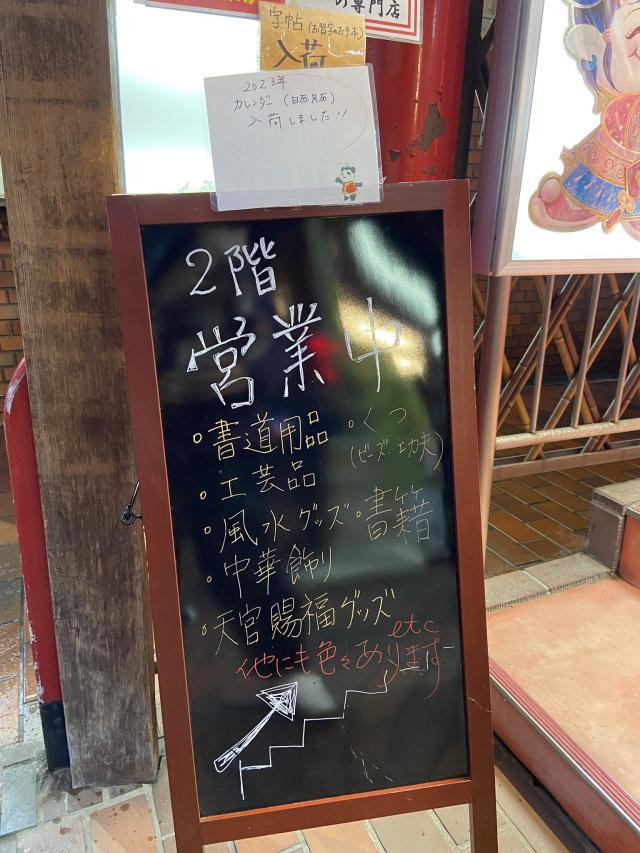 の専門店
字帖(お習字のお手本)
入荷
2023年
カレンダー
入荷しました!!
2階
営業中
◦書道用品
◦くつ
(ビーズ・功夫)
◦工芸品
◦風水グッズ
◦書籍
◦中華飾り
◦天官賜福グッズ
etc
他にも色々あります